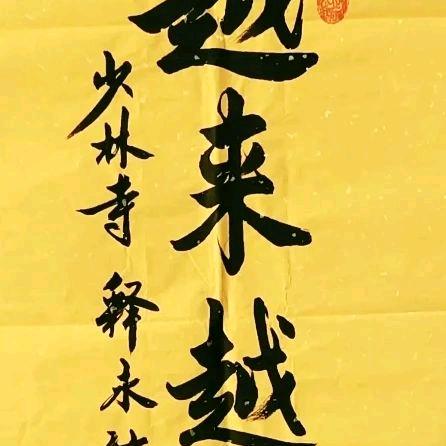 越来越
少林寺 释永